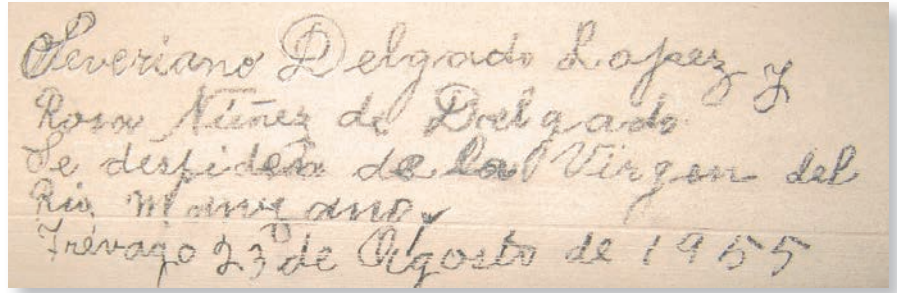 Severiano Delgado Lopez y
Rosa Núñez de Delgado
Se despiden de la Virgen del
Rio Manzano.
Trévago 23 de Agosto de 1955